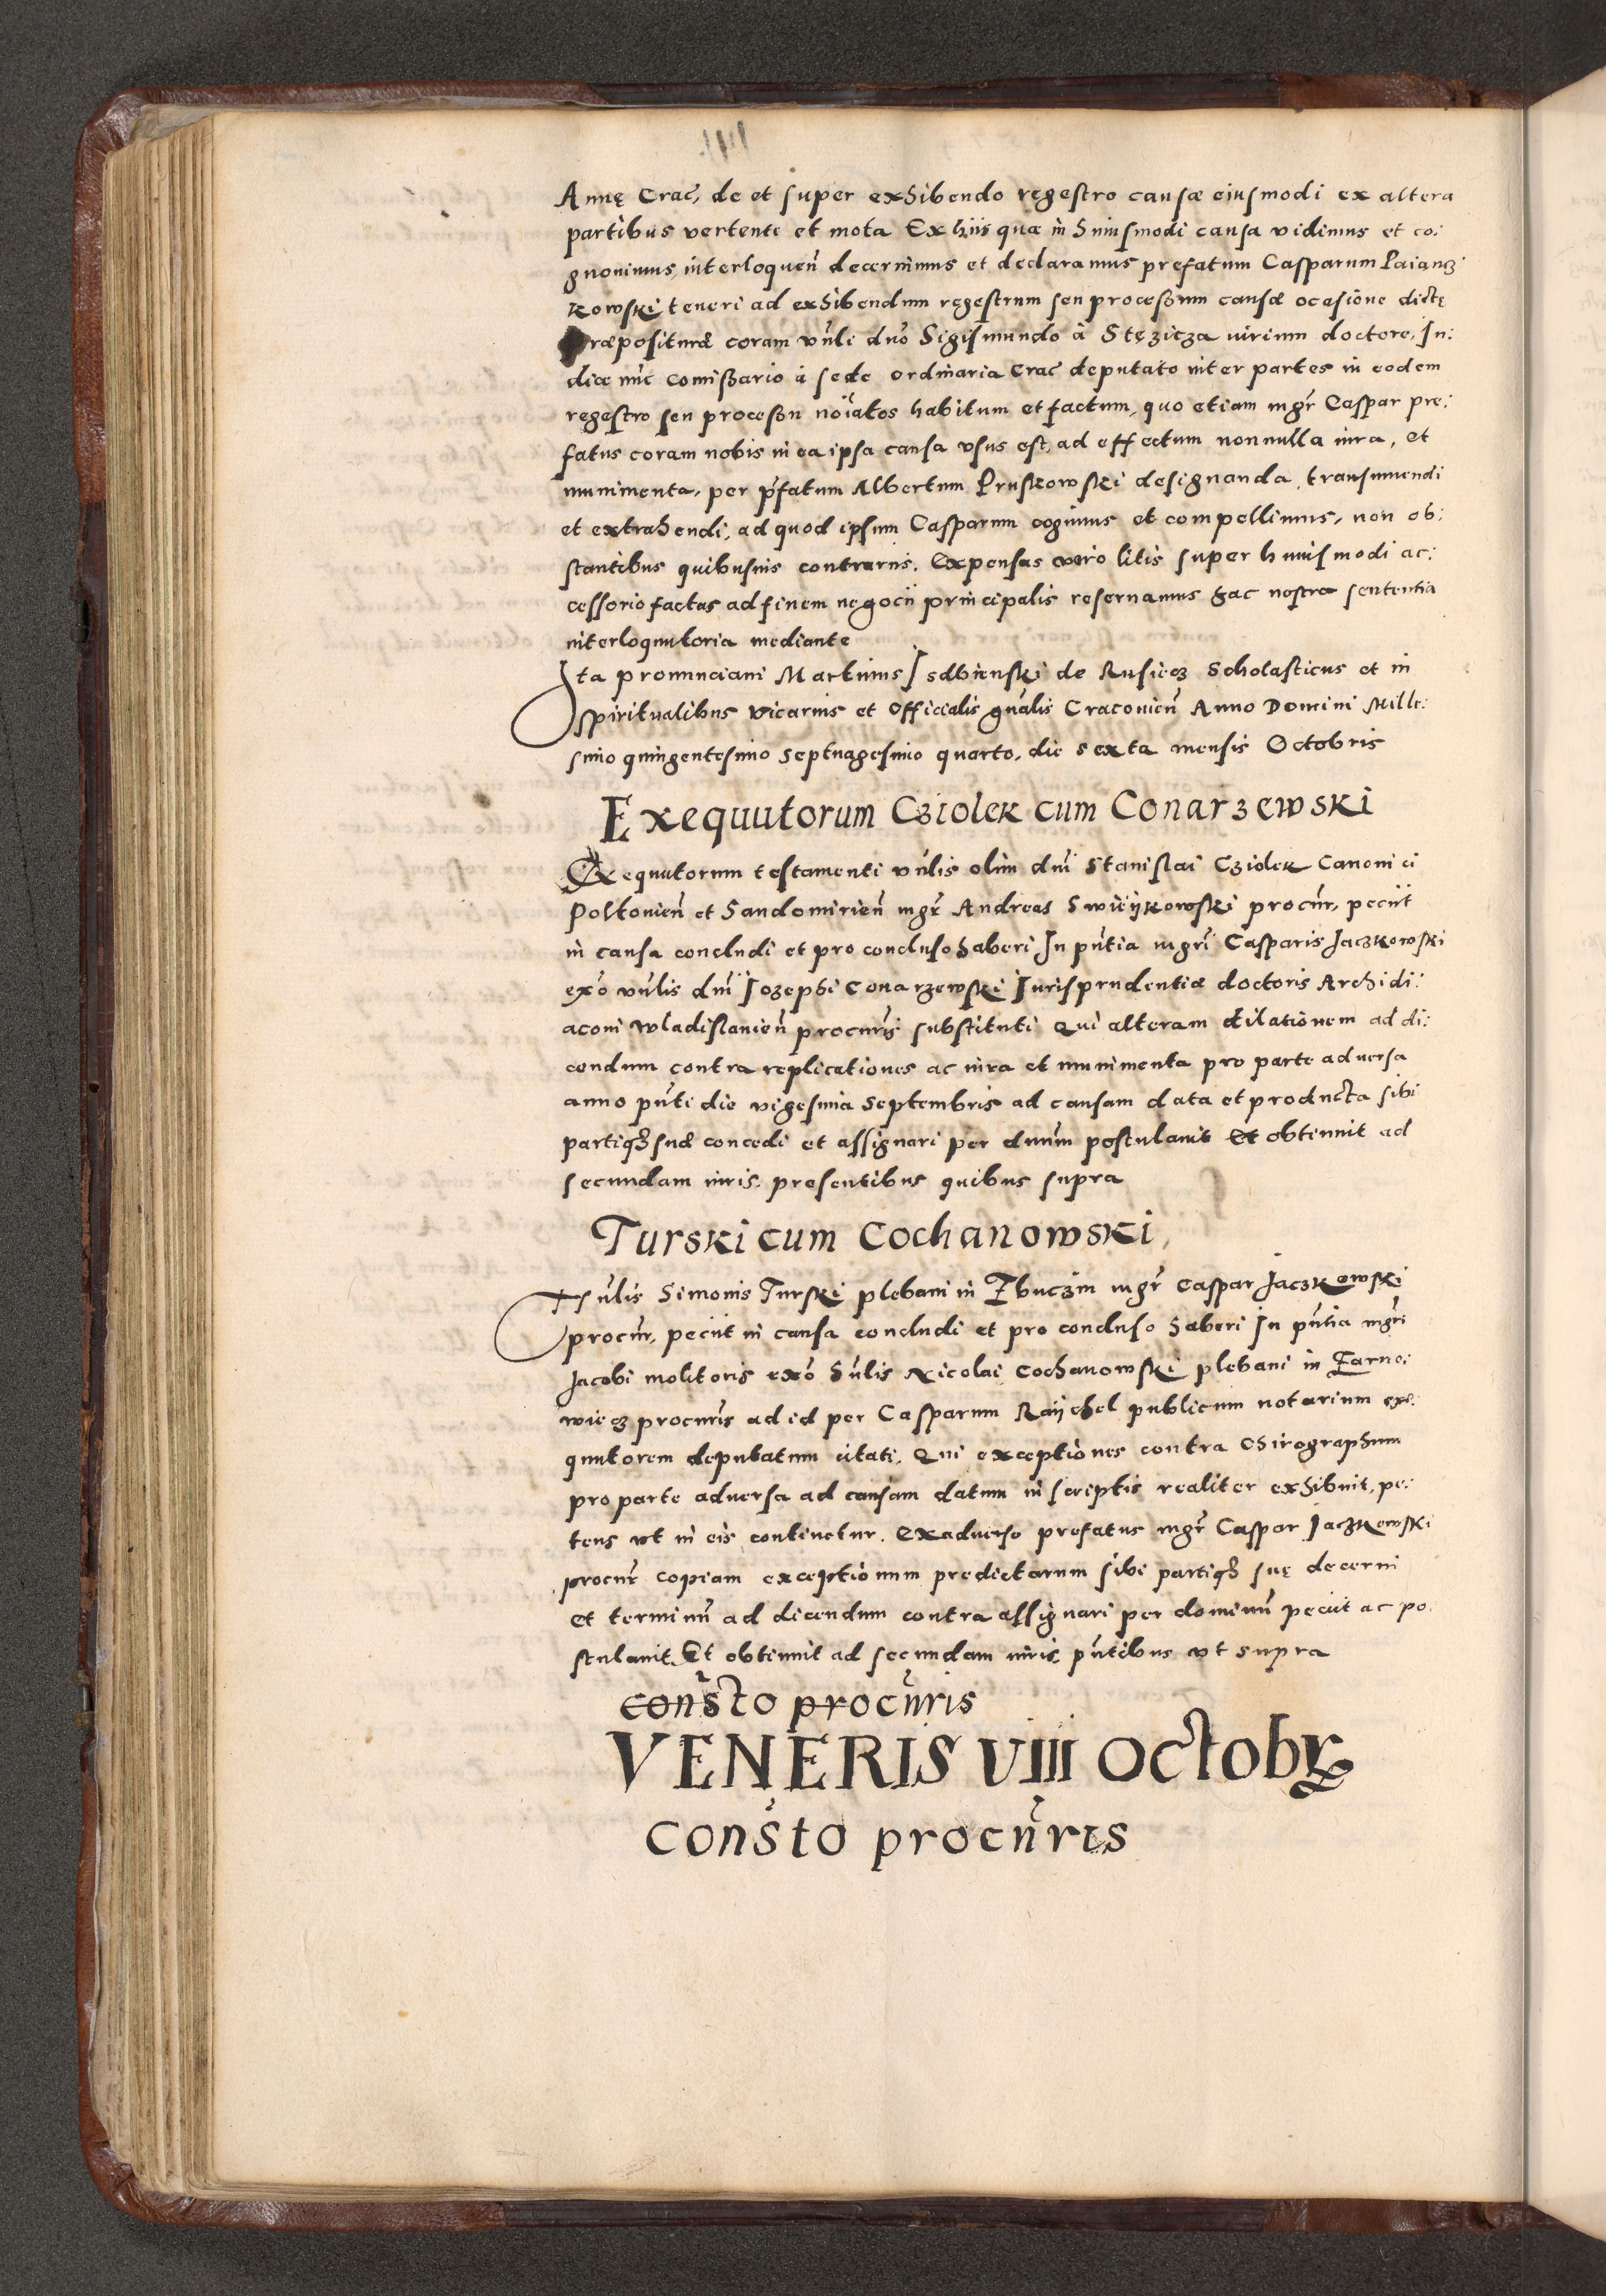 Annę Crac̃, de et super exhibendo regestro causæ eiusmodi ex altera
partibus vertente et mota Ex hiis quæ in huiusmodi causa vidimus et co:
gnouimus, interloquen̄ decernimus et declaramus prefatum Casparum Paiancz
kowski teneri ad exhibendum regestrum seu processum causæ ocasione dictę
Præposituræ coram vn̄li dn̄o Sigismundo à Stęzicza vtrium doctore, Iu:
dice nūc comissario à sede ordinaria Crac̃ deputato inter partes in eodem
regestro seu processu noīatos habitum et factum, quo etiam mgr̄ Caspar pre:
fatus coram nobis in ea ipsa causa vsus est, ad effectum nonnulla iura, et
munimenta, per p̄fatum Albertum Pruskowski designanda, transumendi
et extrahendi, ad quod ipsum Casparum cogimus et compellimus, non ob:
stantibus quibusuis contrariis. Expensas vero litis super huiusmodi ac:
cessorio factas ad finem negocii principalis reseruamus hac nostra sententia
interloquutoria mediante
Ita pronunciaui Martinus Isdbienski de Rusiecz Scholasticus et in
spiritualibus vicarius et officialis gn̄alis Cracouien̄ Anno Domini Mille:
simo quingentesimo septuagesimo quarto, die sexta mensis Octobris
Exequutorum Cziolek cum Conarzewski
Exequutorum testamenti vn̄lis olim dn̄i Stanislai Cziolek Canonici
Poltouien̄ et Sandomirien̄ mgr̄ Andreas Swieÿkowski procur̄, peciit
in causa concludi et pro concluso haberi In pn̄tia mgrī Casparis Jaczkowski
exō vn̄lis dn̄i Iozephi Conarzewski Iurisprudentiæ doctoris Archidi:
aconi Wladislauien̄ procurīs substituti Qui alteram dilationem ad di:
cendum contra replicationes ac iura et munimenta pro parte aduersa
anno pn̄ti die vigesima Septembris ad causam data et producta sibi
partiq₃ suæ concedi et assignari per dnūm postulauit Et obtinuit ad
secundam iuris. presentibus quibus supra
Turski cum Cochanowski
Hn̄lis Simonis Turski plebani in Tbuczin mgr̄ Caspar Jaczkowski
procur̄, peciit in causa concludi et pro concluso haberi In pn̄tia mgrī
Jacobi molitoris exō hn̄lis Nicolai Cochanowski plebani in Tarno:
wiecz procurīs ad id per Casparum Raÿchel publicum notarium exe:
quutorem deputatum citati. Qui exceptiones contra Chirographum
pro parte aduersa ad causam datum in scriptis realiter exhibuit, pe:
tens vt in eis continetur. Exaduerso prefatus mgr̄ Caspar Jaczkowski
procur̄ copiam exceptionum predictarum sibi partiq₃ suę decerni
et terminū ad dicendum contra assignari per dominū peciit ac po
stulauit Et obtinuit ad secundam iuris, pn̄tibus vt supra
cons̄to procūris
VENERIS VIII Octobr̄
Cons̄to procūris